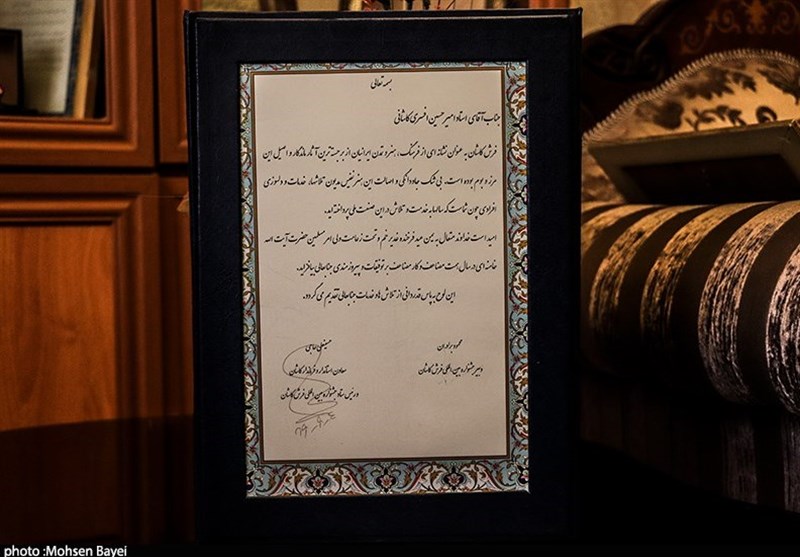 بسمه تعالی
جناب آقای استاد امیرحسین افسری کاشانی
فرش کاشان به عنوان نشانه ای از فرهنگ، هنر و تمدن ایرانیان از برجسته ترین آثار ماندگار و اصیل این
مرز و بوم بوده است. بی شک جاودانگی و اصالت این هنر نفیس مدیون تلاشها، خدمات و دلسوزی
افرادی چون شماست که سالها به خدمت و تلاش در این صنعت ملی پرداخته اید.
امید است خداوند متعال به یمن عید فرخنده غدیر خم و تحت زعامت ولی امر مسلمین حضرت آیت الله
خامنه ای در سال همت مضاعف و کار مضاعف بر توفیقات و پیروزمندی جنابعالی بیافزاید.
این لوح به پاس قدردانی از تلاش ها و خدمات جنابعالی تقدیم می گردد.
محمود
دبیر جشنواره بین المللی فرش کاشان
حسینعلی حاجی
معاون استاندار و فرماندار کاشان
و رئیس ستاد جشنواره بین المللی فرش کاشان
photo :Mohsen Bayei